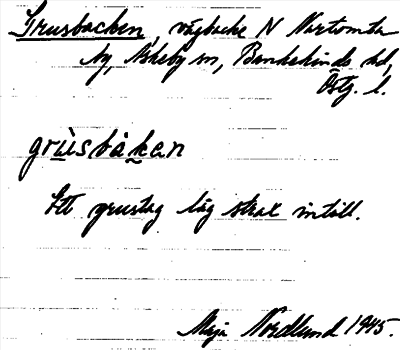 Grusbacken, vägbacke N Närtomta
by, Askeby sn, Bankekinds hd,
Östg. l.
grùsbàkan
Ett grustag låg strax intill.
Maja Nordlund 1945.